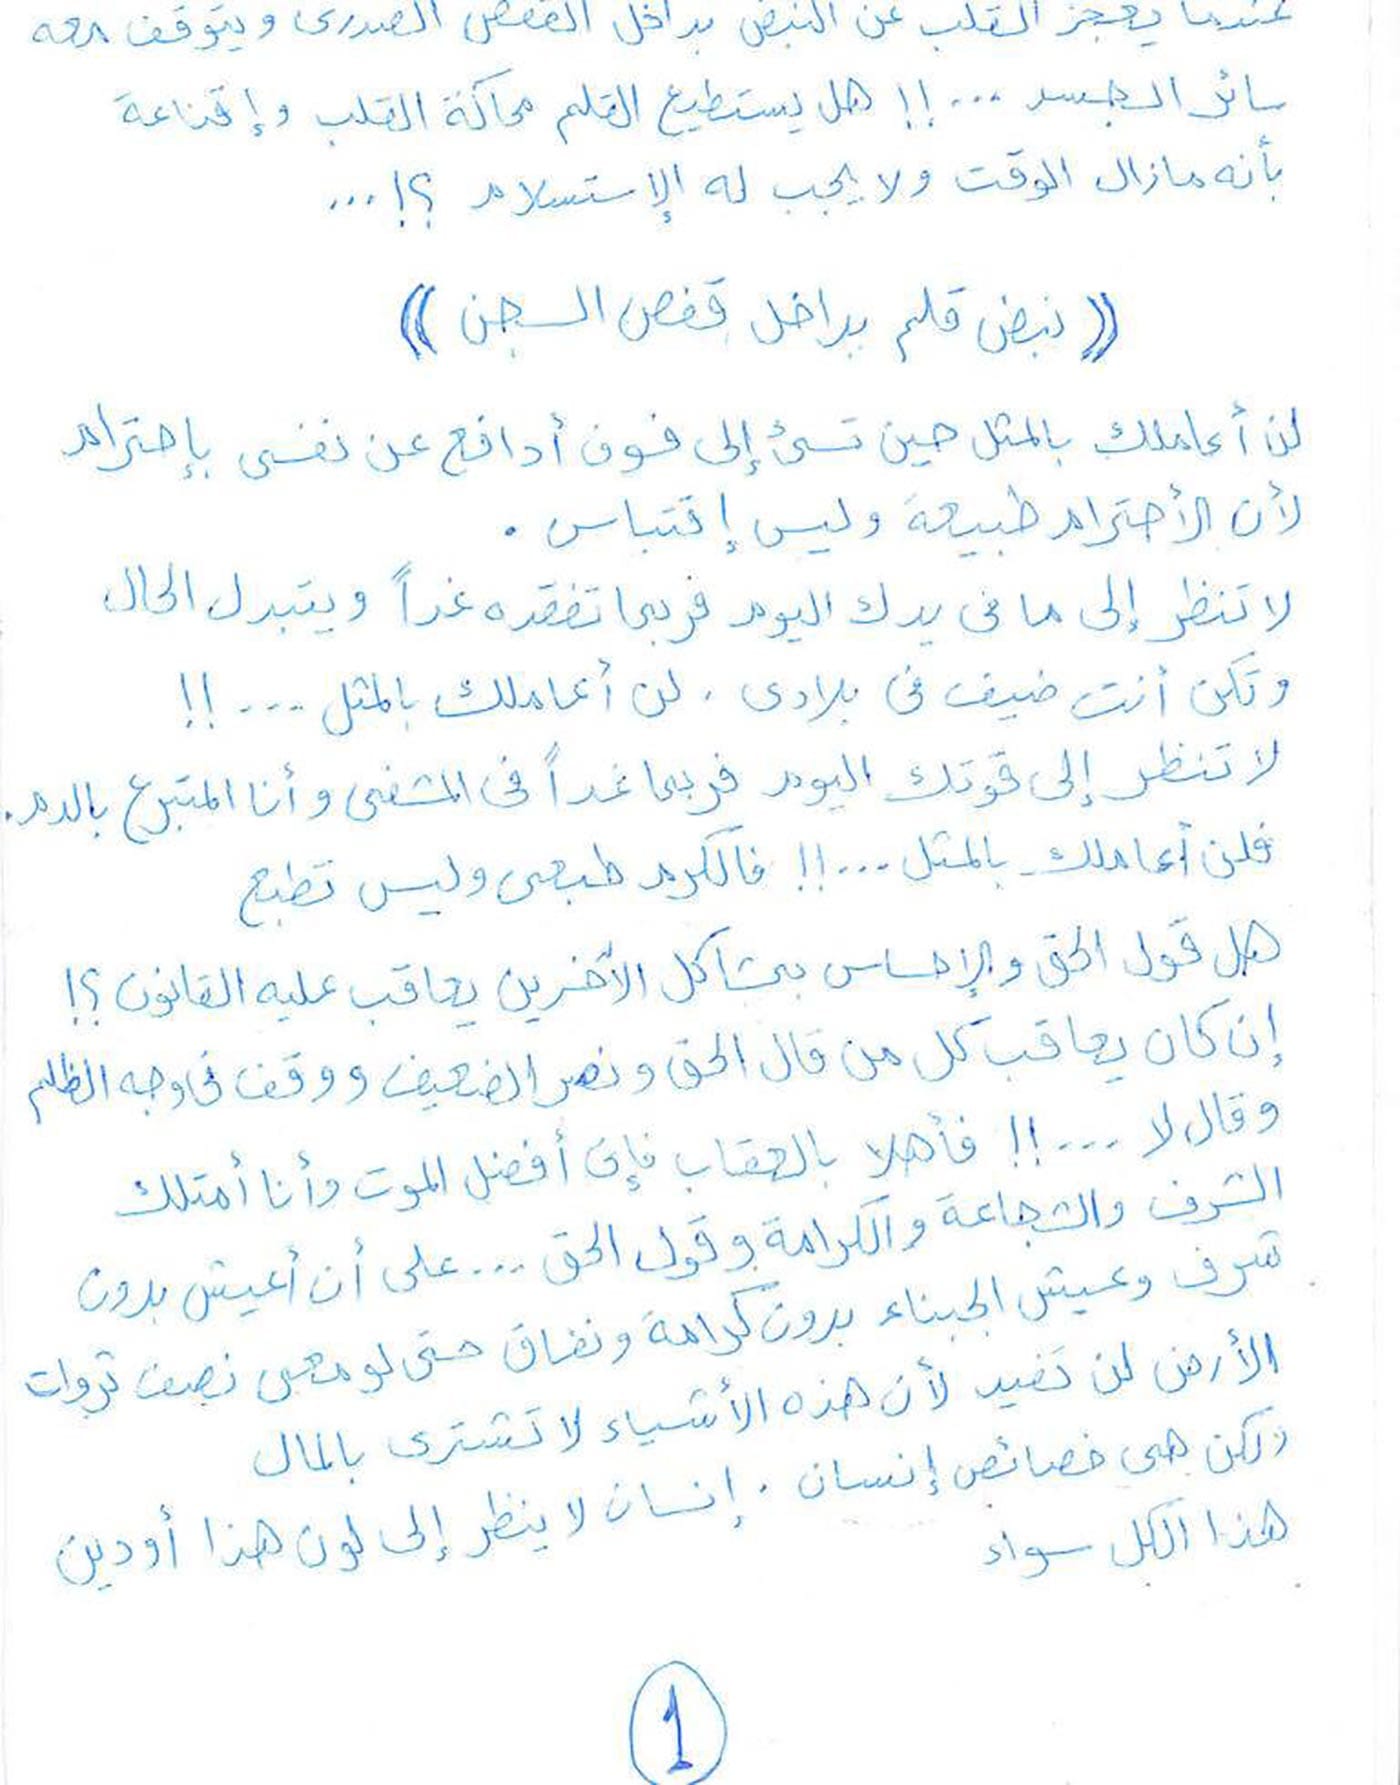 عندما يعجز القلب عن النبض بداخل القفص الصدرى ويتوقف معه
سائر الجسد ...!! هل يستطيع القلم محاكة القلب وإقناعة
بأنه مازال الوقت ولا يجب له الإستسلام ؟!...
(( نبض قلم بداخل قفص السجن ))
لن أعاملك بالمثل حين تسئ إلى فسوف أدافع عن نفسى بإحترام
لأن الأحترام طبيعة وليس إقتباس .
لا تنظر إلى ما فى يدك اليوم فربما تفقده غداً ويتبدل الحال
وتكن أنت ضيف فى بلادى . لن أعاملك بالمثل ...!!
لا تنظر إلى قوتك اليوم فربما غداً فى المشفى وأنا المتبرع بالدم .
فلن أعاملك بالمثل ...!! فالكرم طبعى وليس تطبع
هل قول الحق والإحساس بمشاكل الأخرين يعاقب عليه القانون ؟!
إن كان يعاقب كل من قال الحق ونصر الضعيف ووقف فى وجه الظلم
وقال لا ...!! فأهلا بالعقاب فإنى أفضل الموت وأنا أمتلك
الشرف والشجاعة والكرامة وقول الحق ... على أن أعيش بدون
شرف وعيش الجبناء بدون كرامة ونفاق حتى لو معى نصف ثروات
الأرض لن تفيد لأن هذه الأشياء لا تشترى بالمال
ولكن هى خصائص إنسان . إنسان لا ينظر إلى لون هذا أو دين
هذا الكل سواء
1